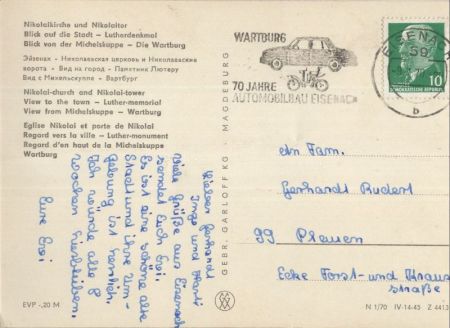 Nikolaikirche und Nikolaitor
Blick auf die Stadt – Lutherdenkmal
Blick von der Michelskuppe – Die Wartburg
Эйзенах – Николаевская церковь и Николаевские
ворота – Вид на город – Памятник Лютеру
Вид с Михельскуппе – Вартбург
Nikolai-church and Nikolai-tower
View to the town – Luther-memorial
View from Michelskuppe – Wartburg
Eglise Nikolai et porte de Nikolai
Regard vers la ville – Luther-monument
Regard d'en haut de la Michelskuppe
Wartburg
Lieber Gerhardt
Inge und
Viele Grüße aus Eisenach
sendet Euch Evi.
Es ist eine schöne alte
Stadt und ihre Um-
gebung ist herrlich.
Ich würde alle 8
Wochen hierbleiben.
Eure Evi
EVP -,20 M
GEBR. GARLOFF KG · MAGDEBURG
WARTBURG
70 JAHRE
AUTOMOBILBAU EISENACH
EISENACH
59
b
10
DEUTSCHE DEMOKRATISCHE REPUBLIK
An Fam.
Gerhardt Rudert
99 Plauen
Ecke Forst- und Kraus
straße
N 1/70 IV-14-45 Z 4413